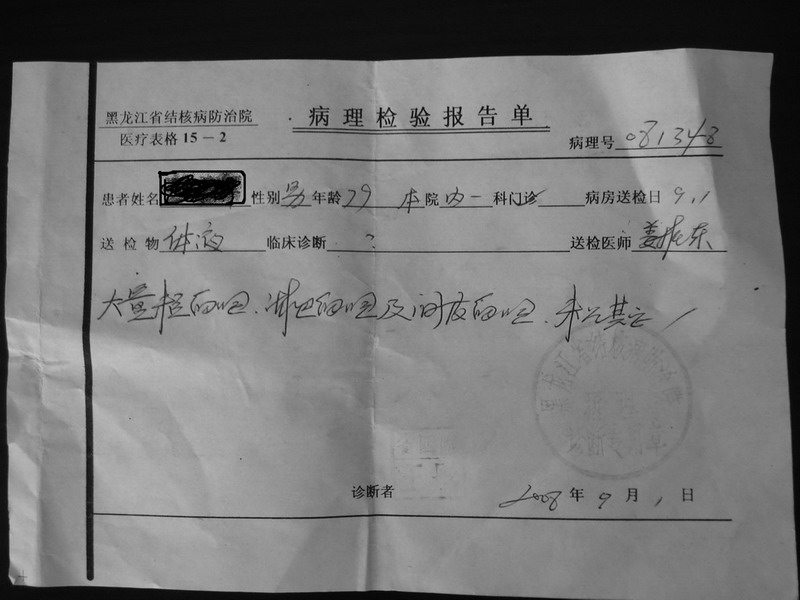 黑龙江省结核病防治院
医疗表格15－2
病理检验报告单
病理号 081348
患者姓名 性别 男 年龄 79 本院 内一 科门诊 病房送检日 9.1
送检物 体液 临床诊断 ? 送检医师 姜
大量 细胞、淋巴细胞及间皮细胞、未见其它
诊断者 2008年9月1日